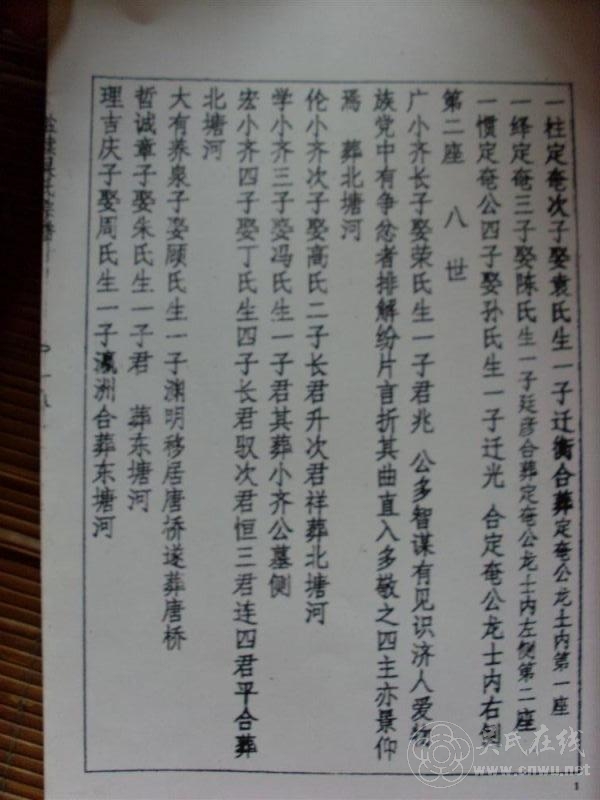 一柱定奄次子娶袁氏生一子迁衡合葬定奄公龙土内第一座
一绎定奄三子娶陈氏生一子廷彦合葬定奄公龙士内左侧第二座
一惯定奄公四子娶孙氏生一子迁光 合定奄公龙士内右侧
第二座 八世
广小齐长子娶荣氏生一子君兆 公多智谋有见识济人爱物
族党中有争忿者排解纷片言折其曲直入多敬之四主亦景仰
焉 葬北塘河
伦小齐次子娶高氏二子长君升次君祥葬北塘河
学小齐三子娶冯氏生一子君其葬小齐公墓侧
宏小齐四子娶丁氏生四子长君驭次君恒三君连四君平合葬
北塘河
大有养泉子娶顾氏生一子渊明移居唐桥遂葬唐桥
哲诚章子娶朱氏生一子君 葬东塘河
理吉庆子娶周氏生一子瀛洲合葬东塘河
1
吴氏在线
www.cnwu.net